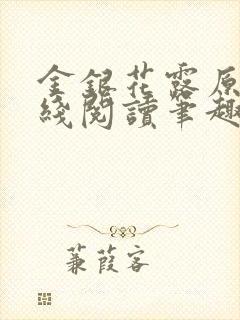 金銀花露原
綫閱讀筆趣
蒹葭客